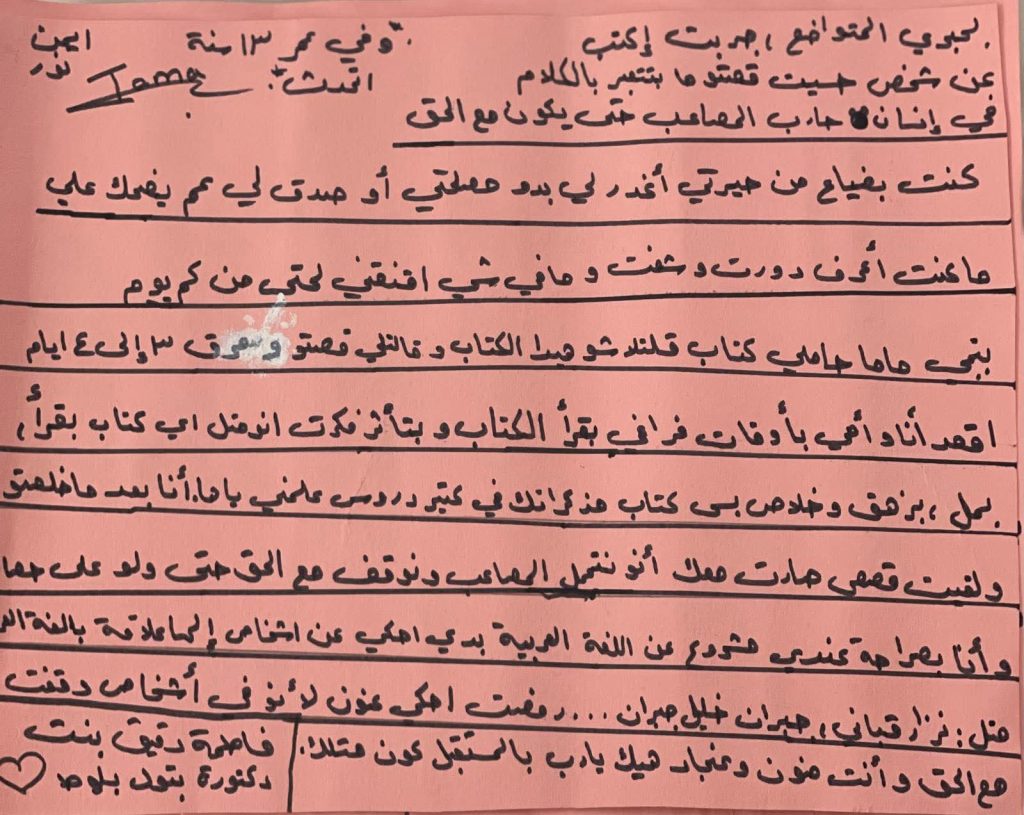 بحبري المتواضع، جربت إكتب
عن شخص حسيت قصتو ما بتتعبر بالكلام
في إنسان حارب المصاعب حتى يكون مع الحق
"وفي عمر ١٣ سنة
اتحدث"
ايمن
نور
كنت بضياع من حيرتي أغدر لي بدو مصلحتي أو صدق لي عم يضحك علي
ما عنت أعرف دورت وشفت و مافي شي اقنعني لحتى من كم يوم
بتجي ماما حاملي كتاب قلتلا شو هيدا الكتاب و قالتلي قصتو و ٣ إلى ٤ ايام
اقعد أنا و أمي بأوقات فراغي بقرأ الكتاب و بتأثر فكرت انو متل اي كتاب بقرأ،
بمل، بزهق و خلاص بس كتاب مذكراتك في كتير دروس علمني ياها. أنا بعد ما خلصتو
و لقيت قصص صارت معك أنو نتحمل المصاعب و نوقف مع الحق حتى ولو على
و أنا بصراحة عندي مشروع عن اللغة العربية بدي احكي عن اشخاص إلها علاقة بالغة
متل: نزار قباني، جبران خليل جبران... رفضت احكي عنون لأنو في أشخاص دقنت
مع الحق و أنت منون و عنجاد هيك يارب بالمستقبل كون متلك.
فاطمة دقيق بنت
دكتورة بتول بلوط